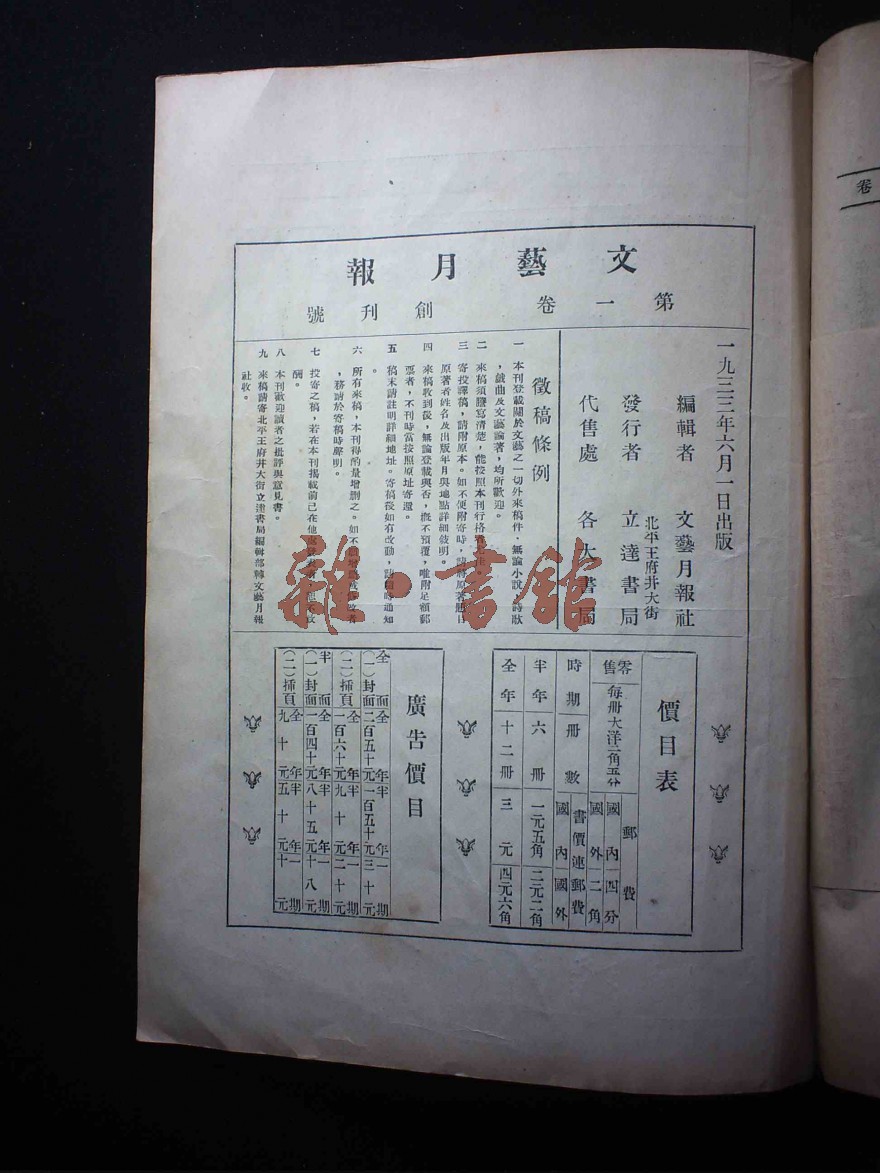 文藝月報
第一卷 創刊號
一九三三年六月一日出版
編輯者 文藝月報社
北平王府井大街
發行者 立達書局
代售處 各大書局
徵稿條例
一 本刊登載關於文藝之一切外來稿件,無論小說,詩歌
,戲曲及文藝論著,均所歡迎。
二 來稿須謄寫清楚,能按照本刊行格
三 寄投譯稿,請附原本。如不便附寄時,請將原著題目
原著者姓名及出版年月與地點詳細敘明。
四 來稿收到後,無論登載與否,概不預覆,唯附足額郵
票者,不刊時當按照原址寄還。
五 稿末請註明詳細地址。寄稿後如有改動,請隨時通知
。
六 所有來稿,本刊得酌量增刪之。如不
,務請於寄稿時聲明。
七 投寄之稿,若在本刊揭載前已在他
酬。
八 本刊歡迎讀者之批評與意見書。
九 來稿請寄北平王府井大街立達書局編輯部轉文藝月報
社收。
價目表
零售 每冊大洋二角五分 郵費 國內一四分 國外二角
時期 冊數 書價連郵費 國內 國外
半年 六冊 一元五角 二元二角
全年 十二冊 三元 四元六角
廣告價目
全面 (一)封面 全年二百五十元 半年一百五十元 一期三十元
(二)插頁 全年一百六十元 半年九十元 一期二十元
半面 (一)封面 全年一百四十元 半年八十五元 一期十八元
(二)插頁 全年九十元 半年五十元 一期十元
雜·書館
卷